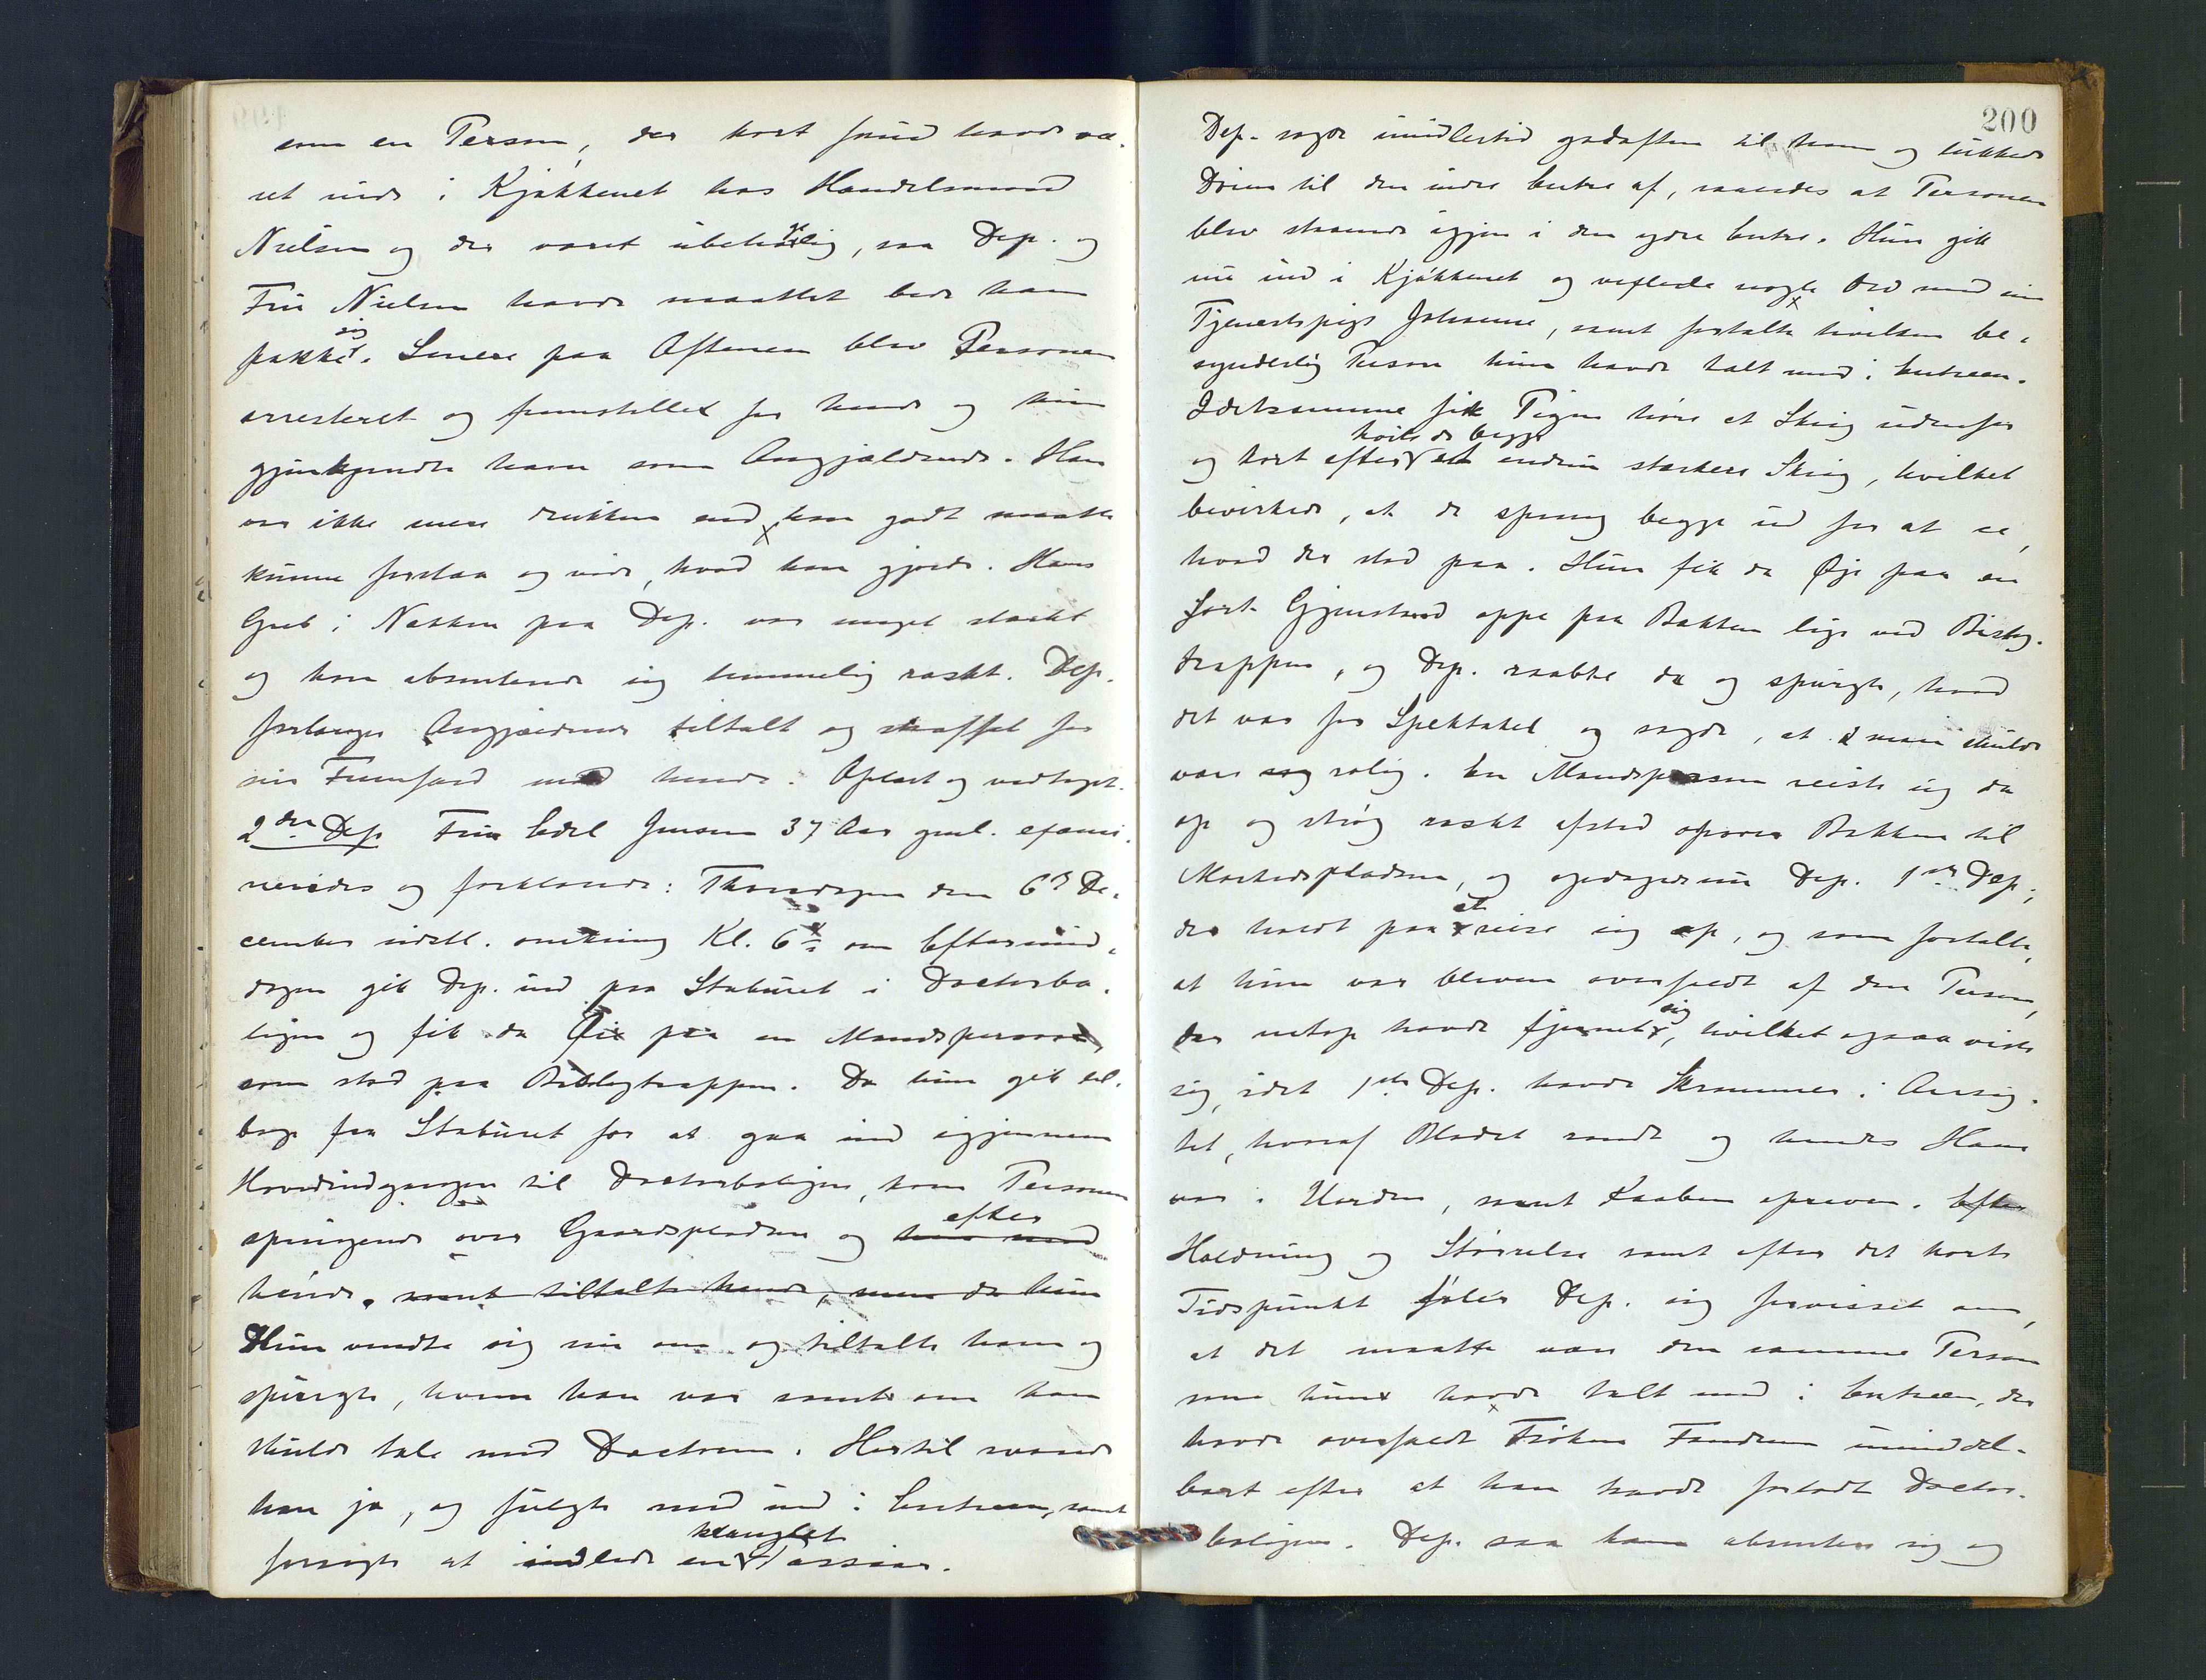 som en Person, der kort forud havde væ-
ret inde i Kjøkkenet hos Handelsmand
Nielsen og der været ubehagelig, saa Dep. og
Fru Nielsen havde maattet bede ham
pakke sig. Senere paa Aftenen blev Personen
arresteret og fremstillet for hende og hun
gjenkjendte ham som Angjældende. Han
var ikke mere drukken end han godt maatte
kunne forstaa og vide, hvad han gjorde. Hans
Greb i Nakken paa Dep. var meget stærkt
og han absenterede sig temmelig raskt. Dep.
forlanger Angjældende tiltalt og straffet for
sin Fremfærd mod hende. Oplæst og vedtaget.
2den Dep. Fru Edel Jensen 37 Aar gml. exami-
neredes og forklarede: Thorsdagen den 6te De-
cember sidstl. omkring Kl. 6 om Eftermid-
dagen gik Dep. ind paa Staburet i Doctorbo-
ligen og fik da Øie paa en Mandsperson,
som stod paa Bislagtrappen. Da hun gik til-
bage fra Staburet for at gaa ind igjennem
Hovedindgangen til Doctorboligen, kom Personen
springende over Gaardspladsen og efter
hende. samt tiltalte hende, men da hun
Hun vendte sig nu om og tiltalte ham og
spurgte, hvem han var samt om han
skulde tale med Doctoren. Hertil svarede
han ja, og fulgte med ind i Entreen, samt
forsøgte at indlede en klanglet Passiar.
200
Dep. sagde imidlertid godaften til ham og lukkede
Døren til den indre Entre af, saaledes at Personen
blev staaende igjen i den ydre Entre. Hun gik
nu ind i Kjøkkenet og vexlede nogle Ord med sin
Tjenestepige Johanne, samt fortalte hvilken be-
synderlig Person hun havde talt med i Entreen.
Idetsamme fik Pigen høre et Skrig udenfor
og kort efter hørte de begge et endnu stærkere Skrig, hvilket
bevirkede, at de sprang begge ud for at se,
hvad der stod paa. Hun fik da Øje paa en
sort Gjenstand oppe paa Bakken lige ved Bislag-
trappen, og Dep. raabte da og spurgte, hvad
det var for Spektakel og sagde, at man skulde
være rolig. En Mandsperson reiste sig da
op og strøg raskt afsted opover Bakken til
Markedspladsen, og opdagede nu Dep. 1ste Dep.,
der holdt paa at reise sig op, og som fortalte,
at hun var bleven overfaldt af den Person,
der netop havde fjernet sig, hvilket ogsaa viste
sig, idet 1ste Dep. havde Skrammer i Ansig-
tet, hvoraf Blodet randt og hendes Haar
var i Uorden, samt Kaaben opreven. Efter
Holdning og Størrelse samt efter det korte
Tidspunkt føler Dep. sig forvisset om,
at det maatte være den samme Person
som hun havde talt med i Entreen, der
havde overfaldt Frøken Fandrem umiddel-
bart efter at han havde forladt Doctor-
boligen. Dep. saa ham absentere sig og